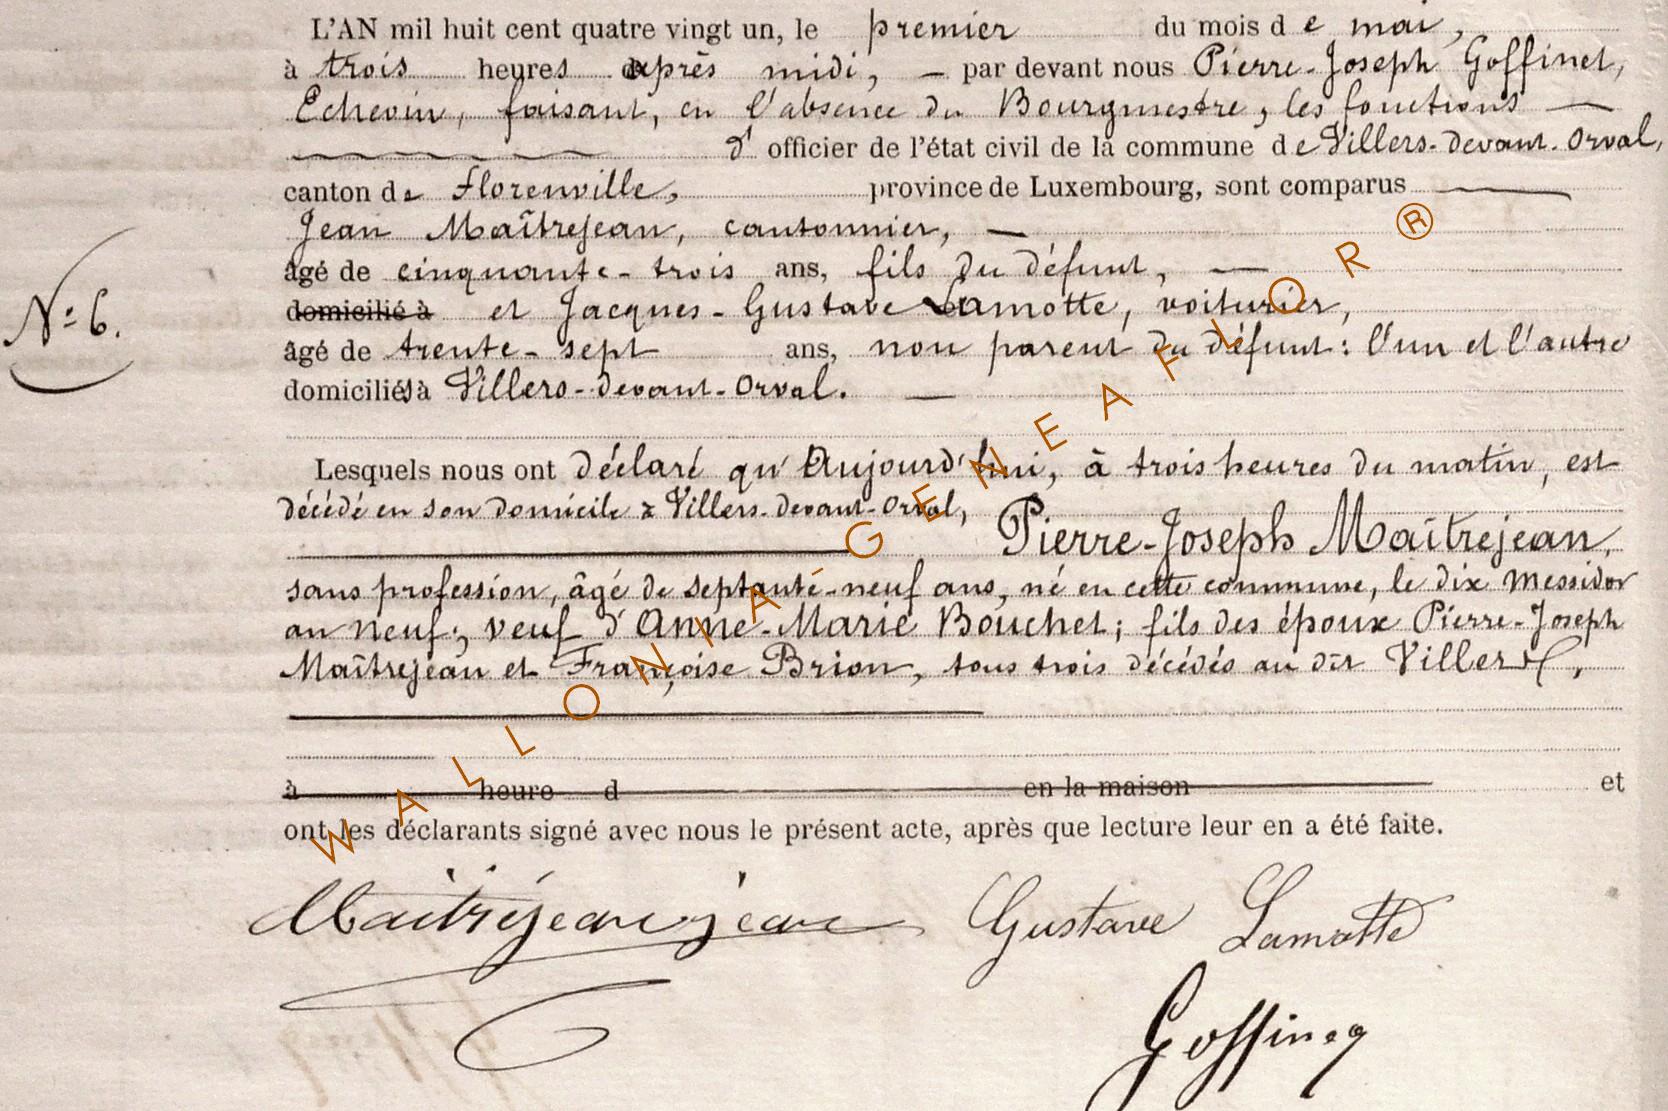 L'AN mil huit cent quatre vingt un, le premier du mois de mai,
à trois heures après midi, — par devant nous Pierre-Joseph Goffinet,
Echevin, faisant, en l'absence du Bourgmestre, les fonctions —
d' officier de l'état civil de la commune de Villers-devant-Orval,
canton de Florenville, province de Luxembourg, sont comparus
Jean Maîtrejean, cantonnier, —
âgé de cinquante-trois ans, fils du défunt, —
N° 6.
domicilié à et Jacques-Gustave Lamotte, voiturier,
âgé de trente-sept ans, non parent du défunt: l'un et l'autre
domiciliés à Villers-devant-Orval. —
Lesquels nous ont déclaré qu'Aujourd'hui, à trois heures du matin, est
décédé en son domicile à Villers-devant-Orval,
Pierre-Joseph Maîtrejean,
sans profession, âgé de septante-neuf ans, né en cette commune, le dix Messidor
an neuf; veuf d'Anne-Marie Bouchet; fils des époux Pierre-Joseph
Maîtrejean et Françoise Brion, tous trois décédés au dit Villers,
à heure d en la maison et
ont les déclarants signé avec nous le présent acte, après que lecture leur en a été faite.
Maitréjean jean Gustave Lamotte
Goffinet
WALLONIA-GENEAFLOR®